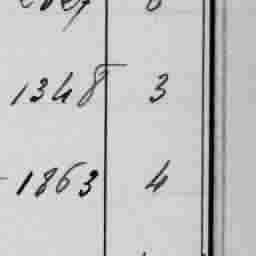 1348 3
1863 4